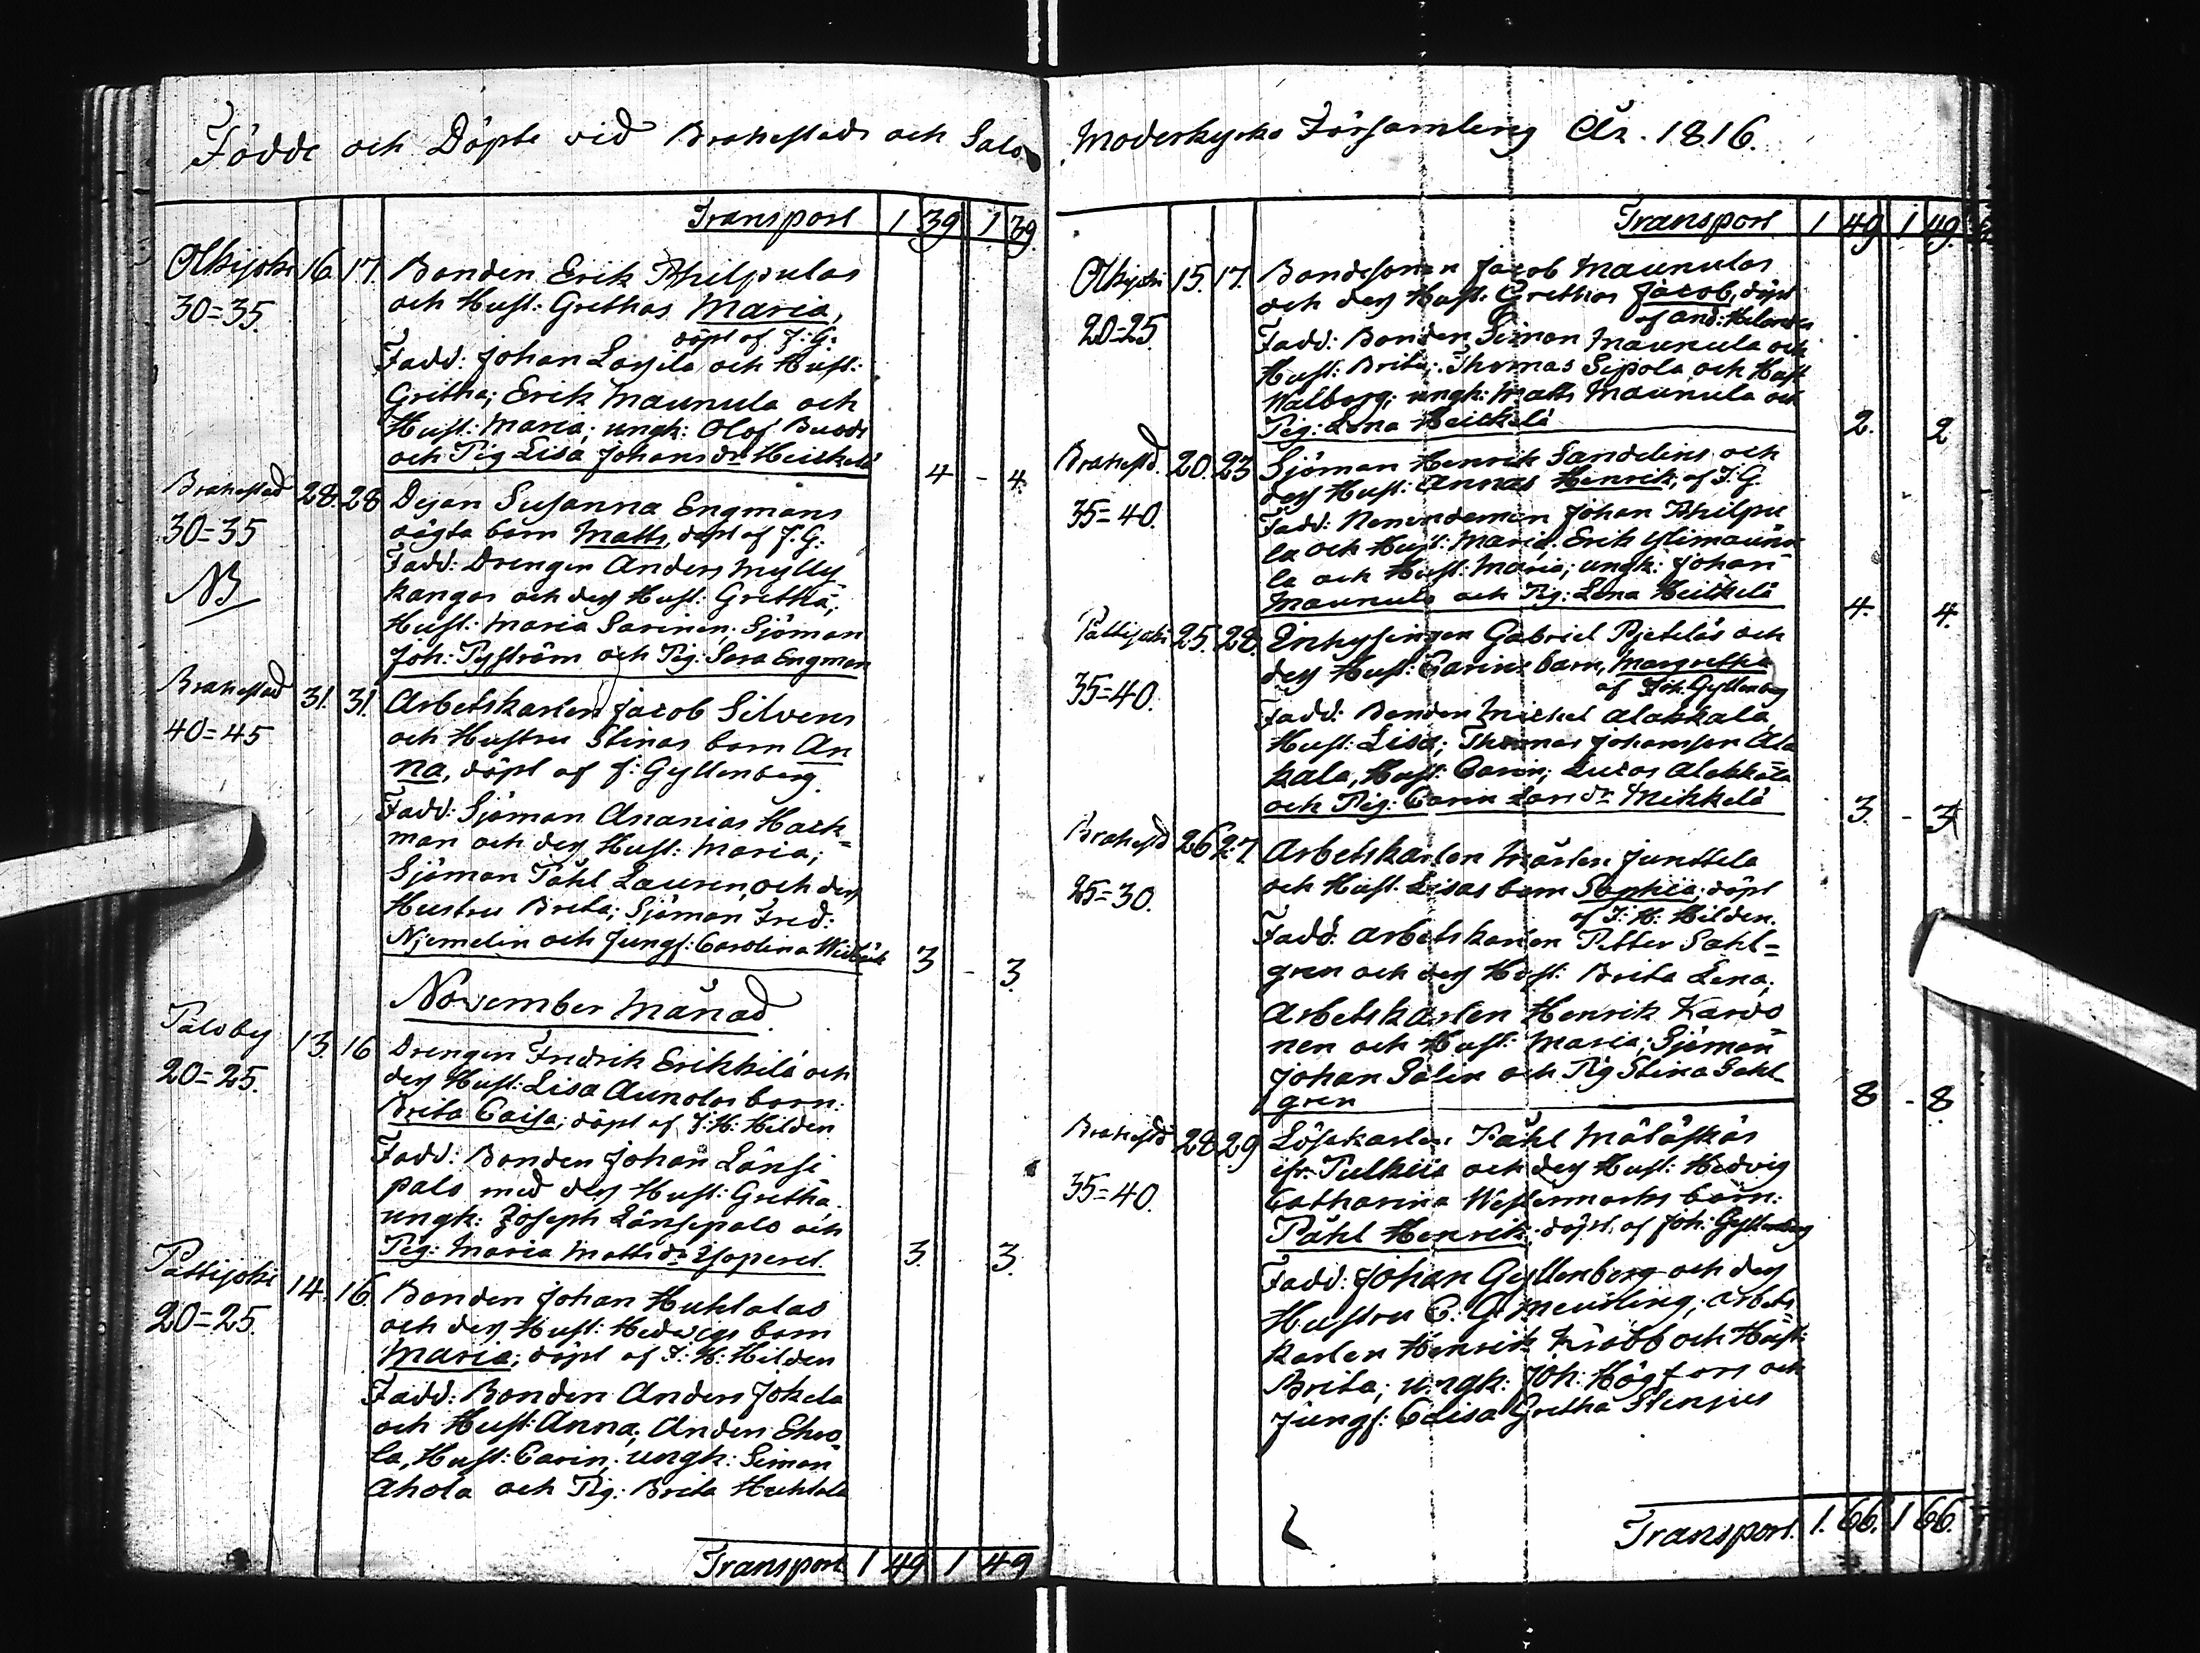 Födde och Döpte vid Brahestads och Salo
Transport 1 39 1 39.
Olkijoki 16. 17. Bonden Erik Philpulas
30=35. och Hust: Grethas Maria,
döpt af J: G:
Fadd: Johan Lassila och Hust:
Gretha; Erik Maunula och
Hust: Maria; ungk: Olof
och Pig Lisa Johans dr Heickelä 4 - 4.
Brahestad 28. 28 Dejan Susanna Engmans
30=35 oägta barn Matts, döpt af J. G:
NB Fadd: Drengen Anders Mylly
kangas och dess Hust: Gretha;
Hust: Maria Sarinen; Sjöman
Joh: Tyström och Pig: Sara Engman
Brahestad 31. 31. Arbetskarlen Jacob Silvens
40=45 och Hustru Stinas barn An
na, döpt af J: Gyllenberg.
Fadd: Sjöman Ananias Hack=
man och dess Hust: Maria;
Sjöman Påhl Lauren, och dess
Hustru Brita; Sjöman Fred:
Njemelin och Jungf: Carolina 3 - 3.
November Månad
Palo by 13. 16 Drengen Fredrik Erikkilä och
20=25. dess Hust: Lisa Aunolas barn:
Brita Caisa; döpt af J. H: Hilden
Fadd: Bonden Johan Länsi
palo med dess Hust: Gretha
ungk: Joseph Länsipalo och
Pig: Maria Matts dr 3. 3.
Pattijoki 14. 16. Bonden Johan Huhtalas
20=25. och dess Hust: Hedwigs barn
Maria; döpt af J: H: Hilden
Fadd: Bonden Anders Jokela
och Hust: Anna; Anders
la, Hust: Carin; ungk: Simon
Ahola och Pig: Brita Huhtala
Transport 1 49 1 49
Moderkyrko Församling År. 1816.
Transport 1 49 1 49.
Olkijoki 15. 17. Bondesonen Jacob Maunulas
20=25 och dess Hust: Grethas Jacob, döpt
af And: Helander
Fadd: Bonden Simon Maunula och
Hust: Brita; Thomas Sipola och Hust
Walborg; ungk: Matts Maunula och
Pig: Lena Heickelä 2. 2
Brahestd. 20. 23 Sjöman Henrik Sandelins och
35=40. dess Hust: Annas Henrik, af J. G.
Fadd: Nemndeman Johan Philpu
la och Hust: Maria. Erik Ylimaunu
la och Hust: Maria; ungk: Johan
Maunula och Pig: Lena Heickelä 4. 4.
Pattijoki 25. 28. Inhysingen Gabriel Pjetiläs och
35=40. dess Hust: Carins barn, Margretha
af Joh. Gyllenberg
Fadd: Bonden Michel Alakkala,
Hust: Lisa; Thomas Johansson Ala
kala, Hust: Carin; Lucas Alakkala
och Pig: Carin dr Mikkelä 3. - 3
Brahestd 26 27. Arbetskarlen Mårten Junttila
25=30. och Hust. Lisas barn Sophiia; döpt
af J: H: Hilden.
Fadd: Arbetskarlen Petter Sahl=
gren och dess Hust: Brita Lena;
Arbetskarlen Henrik Karvo
nen och Hust: Maria; Sjöman
Johan Sölin och Pig Stina Sahl
gren 8 - 8.
Brahestd 28 29 Löskarlen Påhl Mäläskäs
35=40. ifr: Pulkiia och dess Hust: Hedvig
Catharina Westermarks barn:
Påhl Henrik; döpt. af Joh: Gyllenberg
Fadd: Johan Gyllenberg och dess
Hustru C: G: Meurling; Arbets
karlen Henrik Krabb och Hust:
Brita; ungk: Joh: Högfors och
Jungf: Lisa Gretha Stenjus
Transport. 1. 66. 1 66.